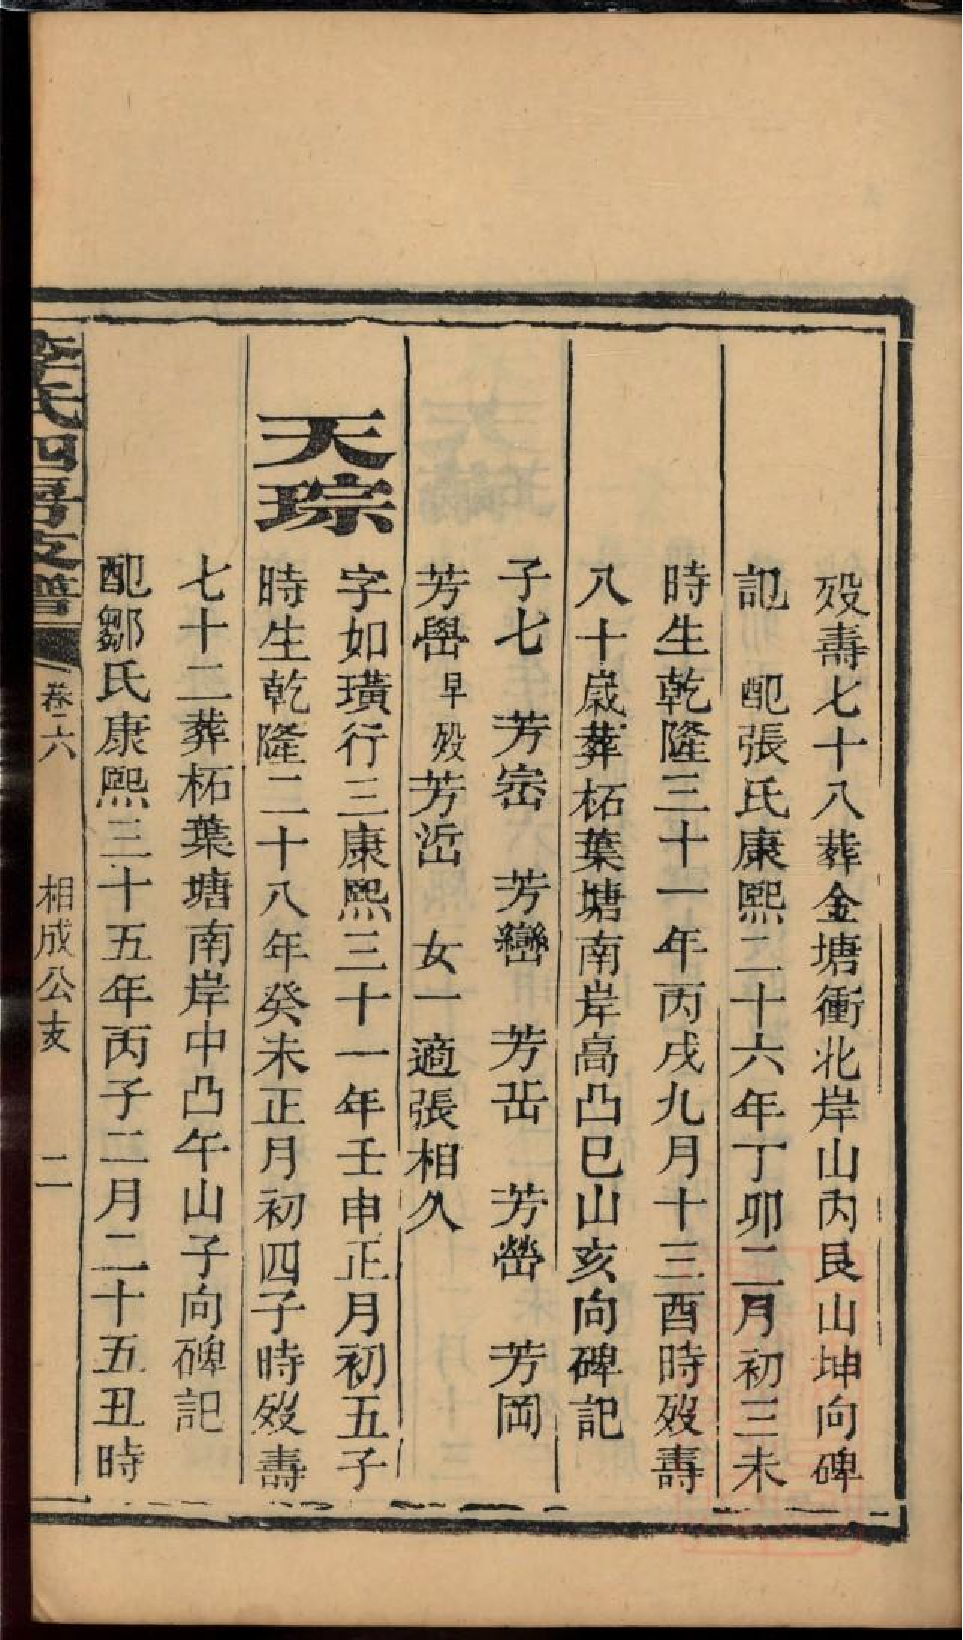 歿壽七十八葬金塘衝北岸山內艮山坤向碑
記　配張氏康熙二十六年丁卯二月初三未
時生乾隆三十一年丙戌九月十三酉時歿壽
八十歲葬柘葉塘南岸高凸巳山亥向碑記
子七　芳崈　芳巒　芳岊　芳嶨　芳岡
芳嶨早歿芳峾　女一適張相久
天琮
字如璜行三康熙三十一年壬申正月初五子
時生乾隆二十八年癸未正月初四子時歿壽
七十二葬柘葉塘南岸中凸午山子向碑記
配鄒氏康熙三十五年丙子二月二十五丑時
氏四房支譜　卷六　相成公支　二